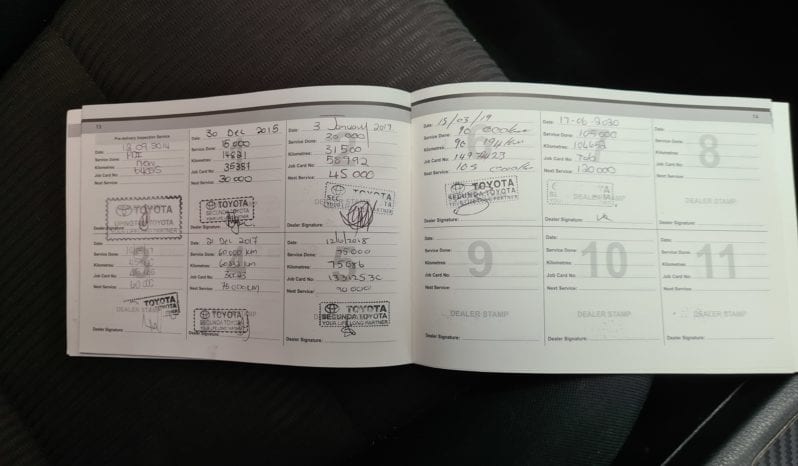 13
Pre-delivery Inspection Service
Date: 12.09.2014
Service Done: PDI
Kilometres: New
Job Card No:
TOYOTA
YOUR LIFE LONG PARTNER
Dealer Signature:
Date: 30 Dec 2015
Service Done: 15,000
Kilometres: 14821
Job Card No: 35351
Next Service: 30 000
TOYOTA
SECUNDA TOYOTA
YOUR LIFE LONG PARTNER
Dealer Signature:
Date: 3 January 2017
Service Done: 30 000
Kilometres: 31500
Job Card No: 58792
Next Service: 45 000
TOYOTA
Dealer Signature:
Date:
Service Done:
Kilometres:
Job Card No:
Next Service: 60 000
DEALER STAMP
TOYOTA
Dealer Signature:
Date: 21 Dec 2017
Service Done: 60000 km
Kilometres:
Job Card No:
Next Service: 75000 km
TOYOTA
SECUNDA TOYOTA
YOUR LIFE LONG PARTNER
Dealer Signature:
Date: 12/6/2018
Service Done: 75000
Kilometres: 75686
Job Card No:
Next Service: 90000
TOYOTA
SECUNDA TOYOTA
YOUR LIFE LONG PARTNER
Dealer Signature:
14
Date: 15/03/19
Service Done: 90 000km
Kilometres: 90 194km
Job Card No:
Next Service: 105 000km
TOYOTA
SECUNDA TOYOTA
Dealer Signature:
Date: 17-06-2020
Service Done: 105 000
Kilometres: 104652
Job Card No:
Next Service: 120 000
Dealer Signature:
Date:
8
Service Done:
Kilometres:
Job Card No:
Next Service:
DEALER STAMP
Dealer Signature:
Date:
9
Service Done:
Kilometres:
Job Card No:
Next Service:
DEALER STAMP
Dealer Signature:
Date:
10
Service Done:
Kilometres:
Job Card No:
Next Service:
DEALER STAMP
Dealer Signature:
Date:
11
Service Done:
Kilometres:
Job Card No:
Next Service:
DEALER STAMP
Dealer Signature: